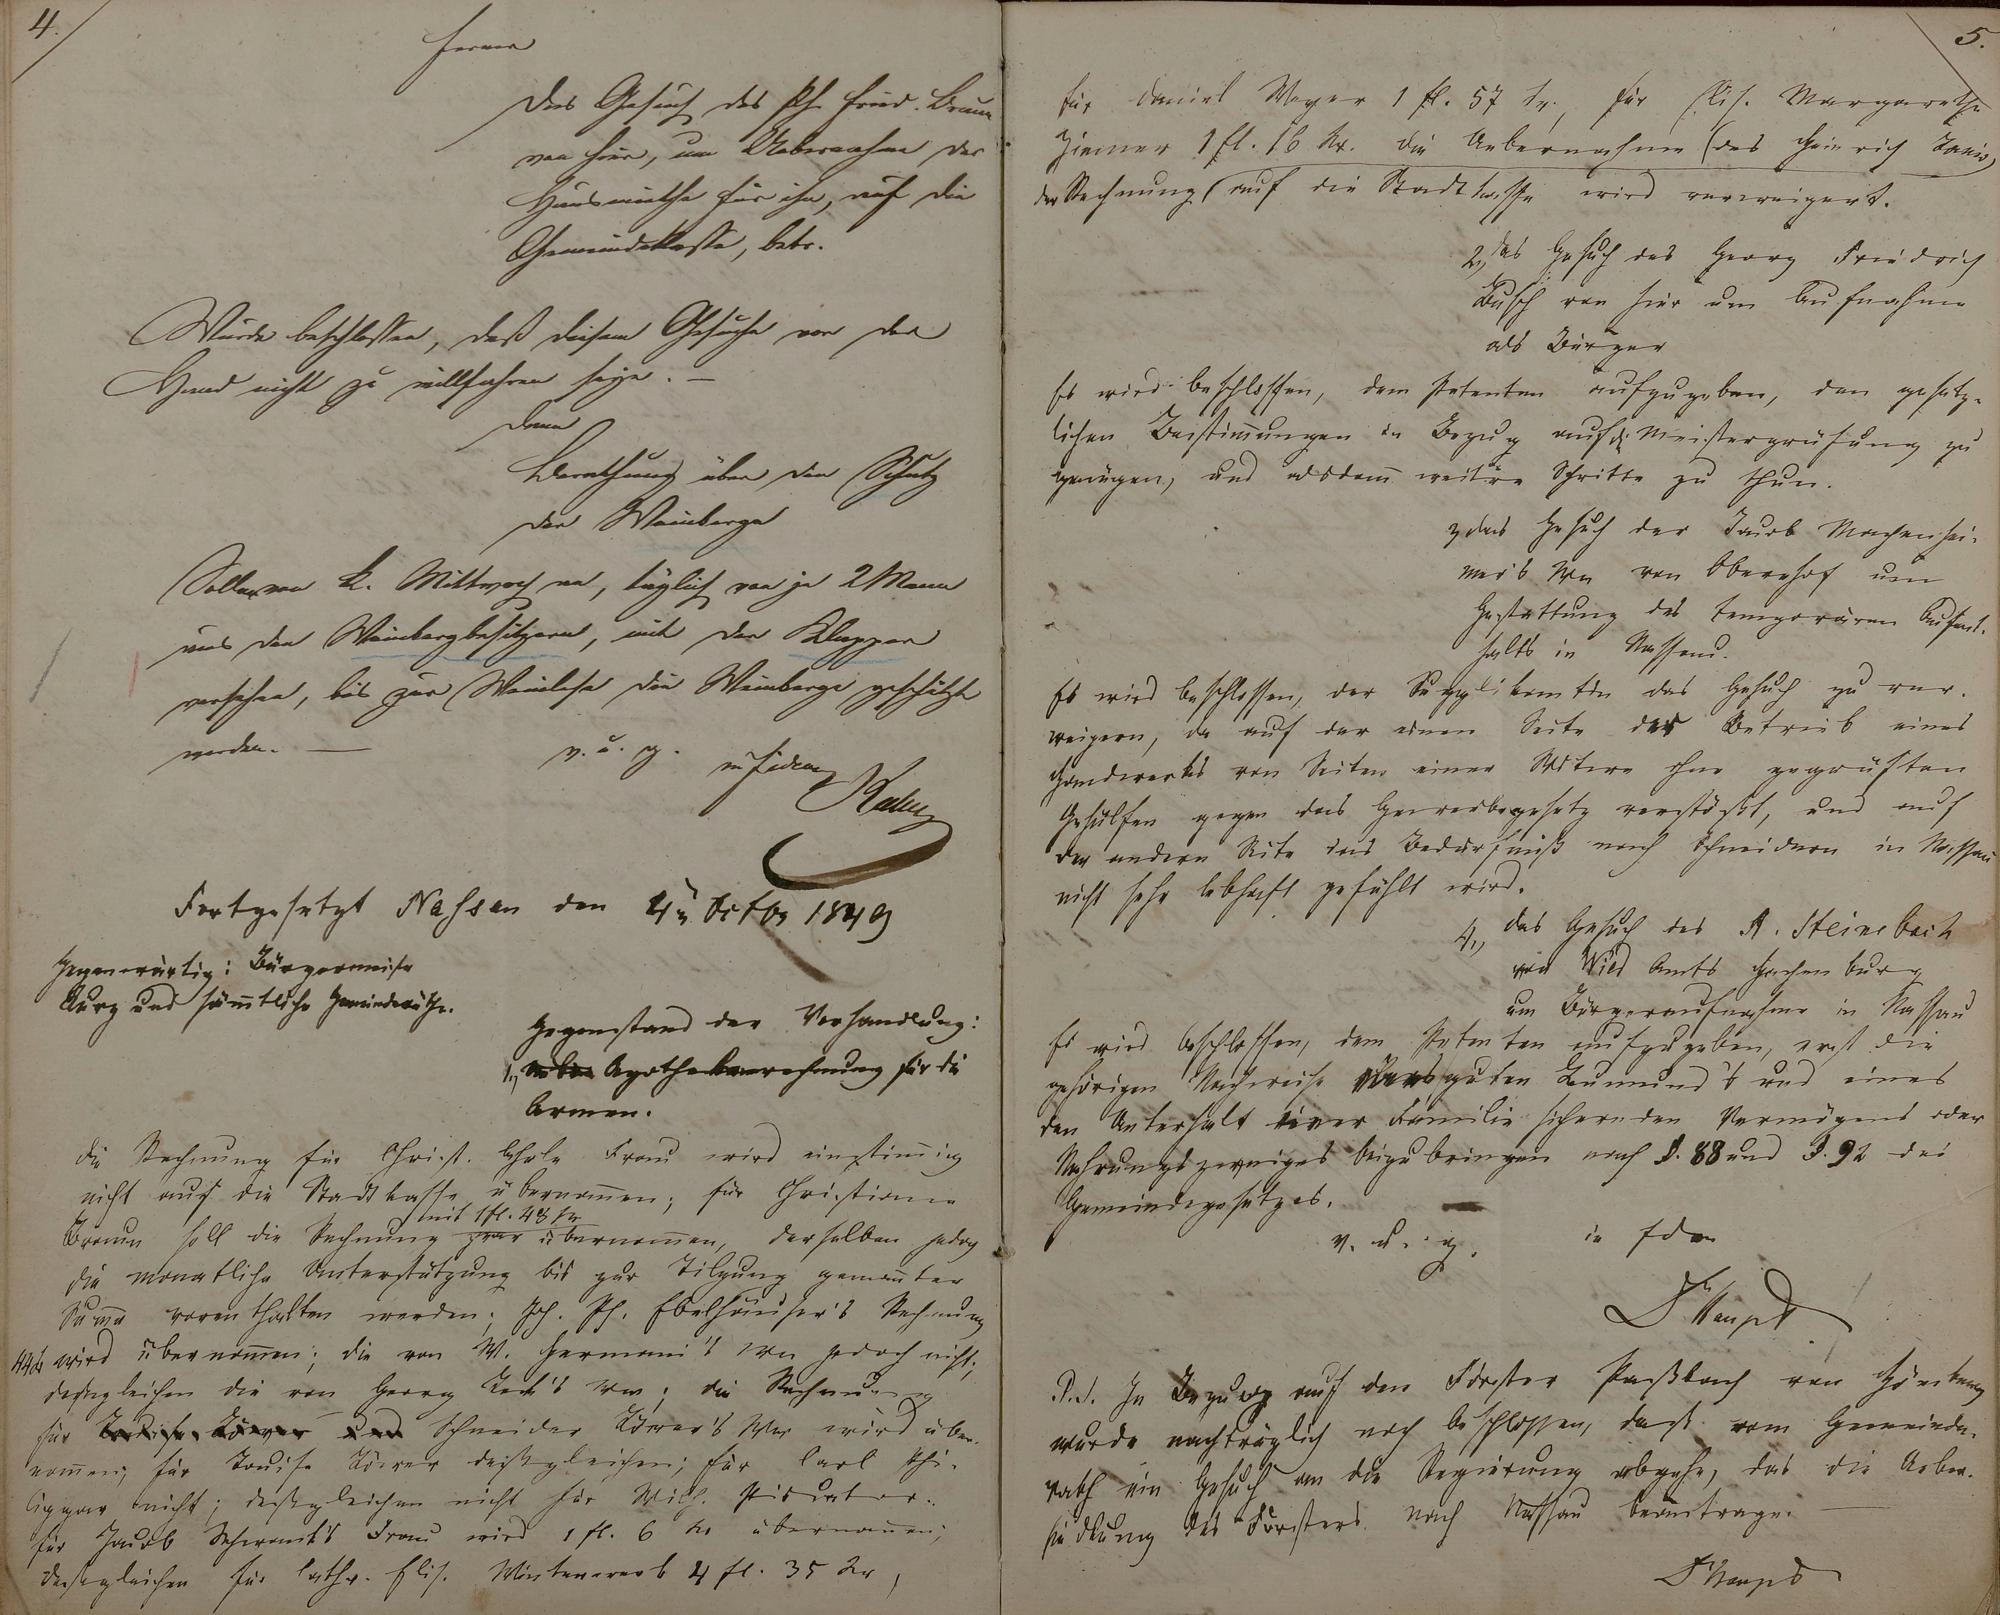 4.
Ferner
Das Gesuch des Ph. Fried. Braun
von hier, um Uebernahme der
Hausmiethe für ihn, auf die
Gemeindekasse, betr.
Wurde beschlossen, daß diesem Gesuche vor der
Hand nicht zu willfahren seye. —
Dann
Berathung über den Schutz
der Weinberge
Sollen von k. Mittwoch an, täglich von je 2 Mann
aus den Weinbergbesitzern, mit der Klapper
versehen, bis zur Weinlese die Weinberge geschützt
werden. —
v. u. g.
in fidem
Fortgesetzt Nassau den 4ten Octbr 1849
Gegenwärtig: Bürgermeister
Kurz und sämtliche Gemeinderäthe.
Gegenstand der Verhandlung:
1., Apothekenrechnung für die
Armen.
Die Rechnung für Christ. Frau wird einstimig
nicht auf die Stadtkasse übernomen; für Christiane
mit 1 fl. 48 kr
Braun soll die Rechnung zwar übernomen, derselben jedoch
die monatliche Unterstützung bis zur Tilgung genanter
Suma vorenthalten werden; Joh. Ph. Ebelhäuser's Rechnung
44 kr wird übernomen; die von W. Germann's Ww jedoch nicht;
desgleichen die von Georg Ww; die Rechnung
für Louise und Schneider Ww wird über-
nomen; für Louise deßgleichen; für Carl Phi-
lippar nicht; deßgleichen nicht für Wilh. Piscator.
für Jacob Schwenk's Frau wird 1 fl. 6 kr übernomen;
deßgleichen für Cath. Elis. Winterwerb 4 fl. 35 kr,
5.
für Daniel Meyer 1 fl. 57 kr., für Elis. Margarethe
Ziemer 1 fl. 16 kr. die Uebernahme (des Heinrich
der Rechnung auf die Stadtkasse wird verweigert.
2., das Gesuch des Georg Friedrich
Busch von hier um Aufnahme
als Bürger
Es wird beschlossen, dem Petenten aufzugeben, den gesetz-
lichen Bestimungen in Bezug auf die Meisterprüfung zu
genügen, und alsdann weitere Schritte zu thun.
3 das Gesuch der Jacob Machenhei-
mer's Ww von Obernhof um
Gestattung des temporären Aufent-
halts in Nassau.
Es wird beschlossen, der Supplikantin das Gesuch zu ver-
weigern, da auf der einen Seite der Betrieb eines
Handwerks von Seiten einer Witwe ohne geprüften
Gehülfen gegen das Gewerbegesetz verstößt, und auf
der andern Seite das Bedürfniß nach Schneidern in Nassau
nicht sehr lebhaft gefühlt wird.
4., das Gesuch des A. Steinebach
von Wied Amts Hachenburg
um Bürgeraufnahme in Nassau
Es wird beschlossen, dem Petenten aufzugeben, erst die
gehörigen Nachweise eines guten Leumund's und eines
den Unterhalt einer Familie sichernden Vermögens oder
Nahrungszweiges beizubringen nach §. 88 und §. 92 des
Gemeindegesetzes.
v. u. g.
in fdm
P.S. In Bezug auf den Förster Paßbach von Hömberg
wurde nachträglich noch beschlossen, daß vom Gemeinde-
rath ein Gesuch an die Regierung abgehe, das die Ueber-
siedlung des Försters nach Nassau beantrage. —